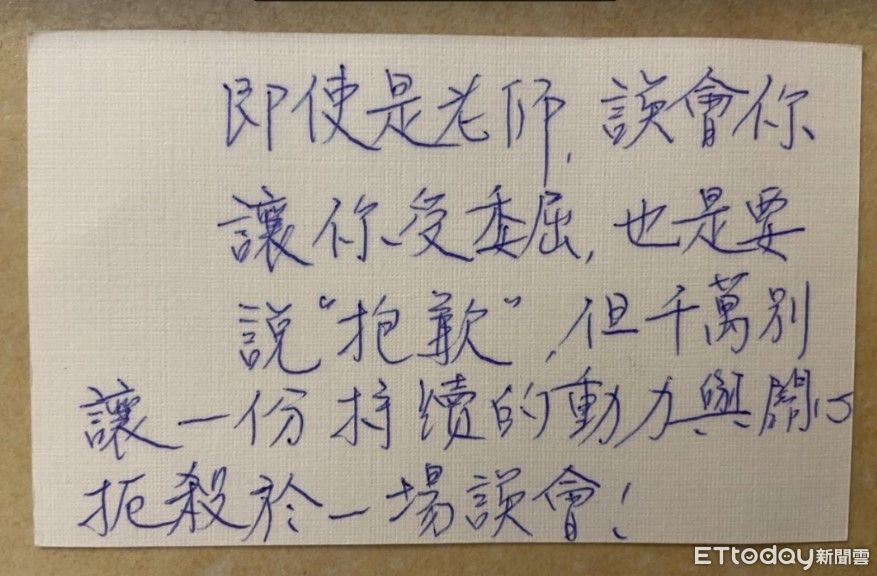 即使是老師,誤會你
讓你受委屈,也是要
說“抱歉”,但千萬別
讓一份持續的動力與開心
扼殺於一場誤會!
ETtoday新聞雲